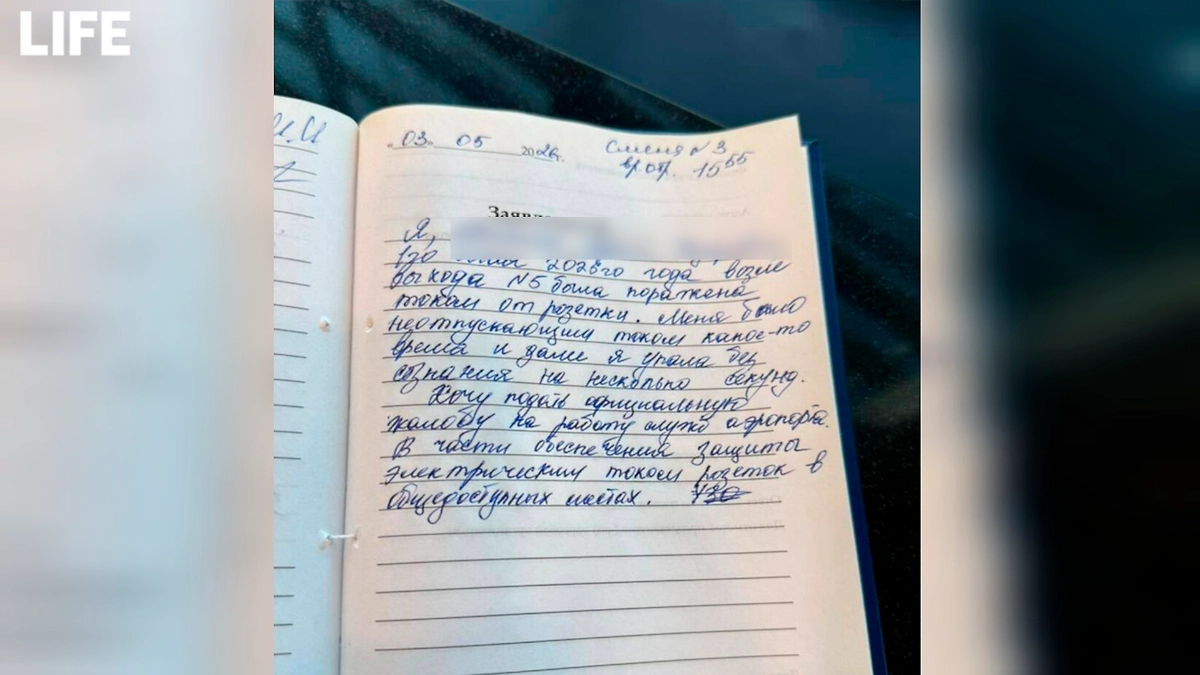 LIFE
И.И
"03" 05 2026г. Смена N3
вр.от. 15 55
Заявле
Я,
2026го года возле
выхода N5 была поражена
током от розетки. Меня било
неотпускающим током какое-то
время и даже я упала без
сознания на несколько секунд.
Хочу подать официальную
жалобу на работу служб аэропорта.
В части обеспечения защиты
электрическим током розеток в
общедоступных местах.